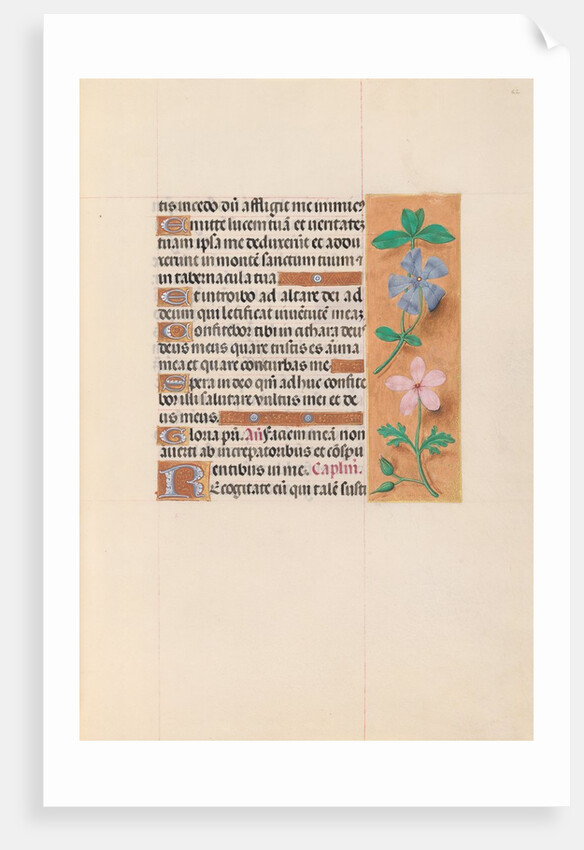 tis incedo dũ affligit me inimic9
Emitte lucem tuã et veritatez
tuam ipsa me deduxerũt et addu
xerũt in montẽ sanctum tuum ⁊
in tabernacula tua
Et introibo ad altare dei ad
deum qui letificat iuventutẽ meaz
Confitebor tibi in cithara deus
deus meus quare tristis es aĩma
mea et quare conturbas me
Spera in deo qm̃ adhuc confite
bor illi salutare vultus mei et de
us meus.
Gloria pri. Añ faciem meã non
averti ab increpatoribus et cõspu
entibus in me. Caplm̃.
Recogitate eũ qui talẽ susti